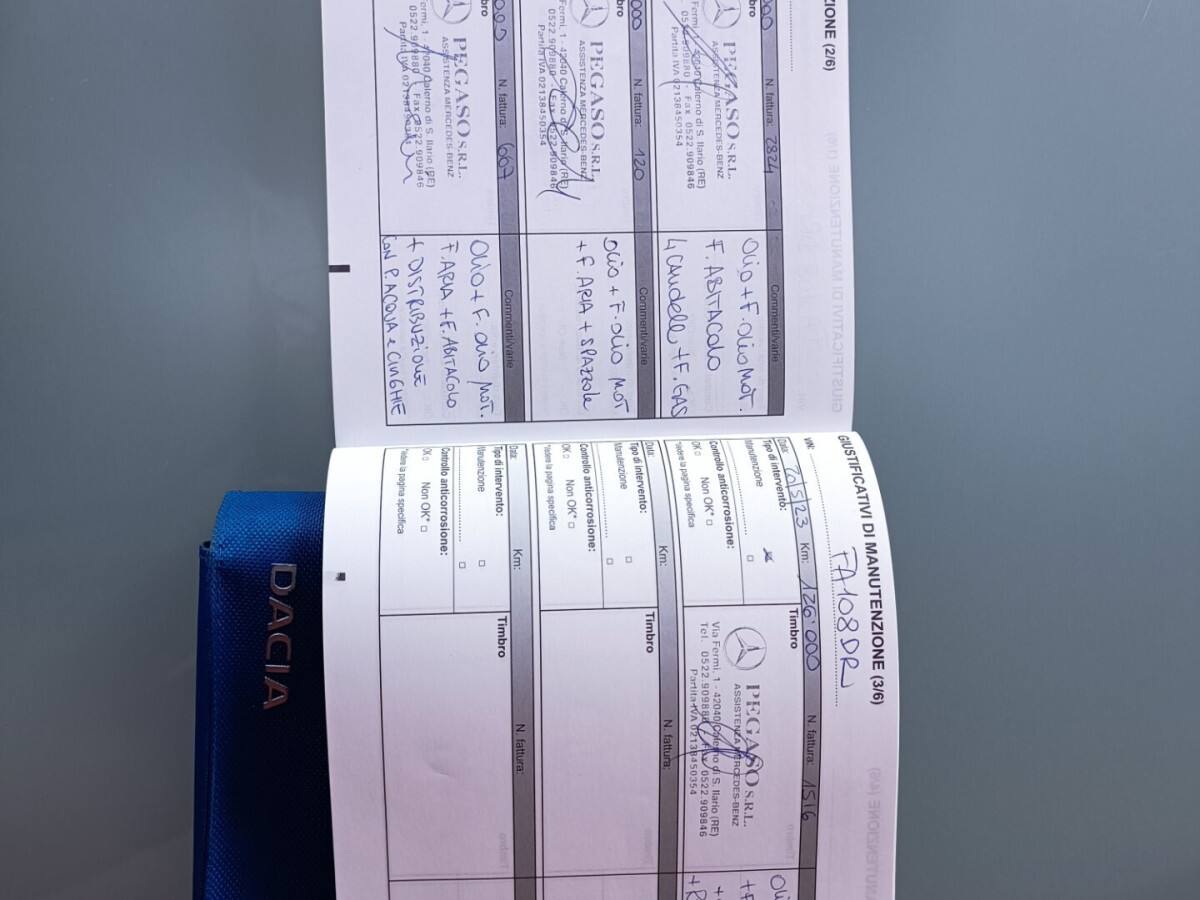 ZIONE (2/6)
000 N. fattura: 2824 Commenti/varie
Timbro
PEGASO S.R.L.
ASSISTENZA MERCEDES-BENZ
Fermi, 1 - 42040 Calerno di S. Ilario (RE)
0522.909880 - Fax 0522.909846
Partita IVA 02138450354
OLIO + F. OLIO MOT.
F. ABITACOLO
4 CANDELE + F. GAS
000 N. fattura: 120 Commenti/varie
Timbro
PEGASO S.R.L.
ASSISTENZA MERCEDES-BENZ
Fermi, 1 - 42040 Calerno di S. Ilario (RE)
0522.909880 Fax 0522.909846
Partita IVA 02138450354
OLIO + F. OLIO MOT
+ F. ARIA + SPAZZOLE
000 N. fattura: 607 Commenti/varie
Timbro
PEGASO S.R.L.
ASSISTENZA MERCEDES-BENZ
Fermi, 1 - 42040 Calerno di S. Ilario (RE)
0522.909880 - Fax 0522.909846
Partita IVA 02138450354
OLIO + F. OLIO MOT.
F. ARIA + F. ABITACOLO
+ DISTRIBUZIONE
CON P. ACQUA e CINGHIE
GIUSTIFICATIVI DI MANUTENZIONE (3/6)
VIN: FA108DR
Data: 20/5/23 Km: 126'000 N. fattura: 1516
Tipo di intervento: Timbro
Manutenzione
Controllo anticorrosione:
OK Non OK*
*Vedere la pagina specifica
PEGASO S.R.L.
ASSISTENZA MERCEDES-BENZ
Via Fermi, 1 - 42040 Calerno di S. Ilario (RE)
Tel. 0522.909880 - Fax 0522.909846
Partita IVA 02138450354
Data: Km: N. fattura:
Tipo di intervento: Timbro
Manutenzione
Controllo anticorrosione:
OK Non OK*
*Vedere la pagina specifica
Data: Km: N. fattura:
Tipo di intervento: Timbro
Manutenzione
Controllo anticorrosione:
OK Non OK*
*Vedere la pagina specifica
DACIA